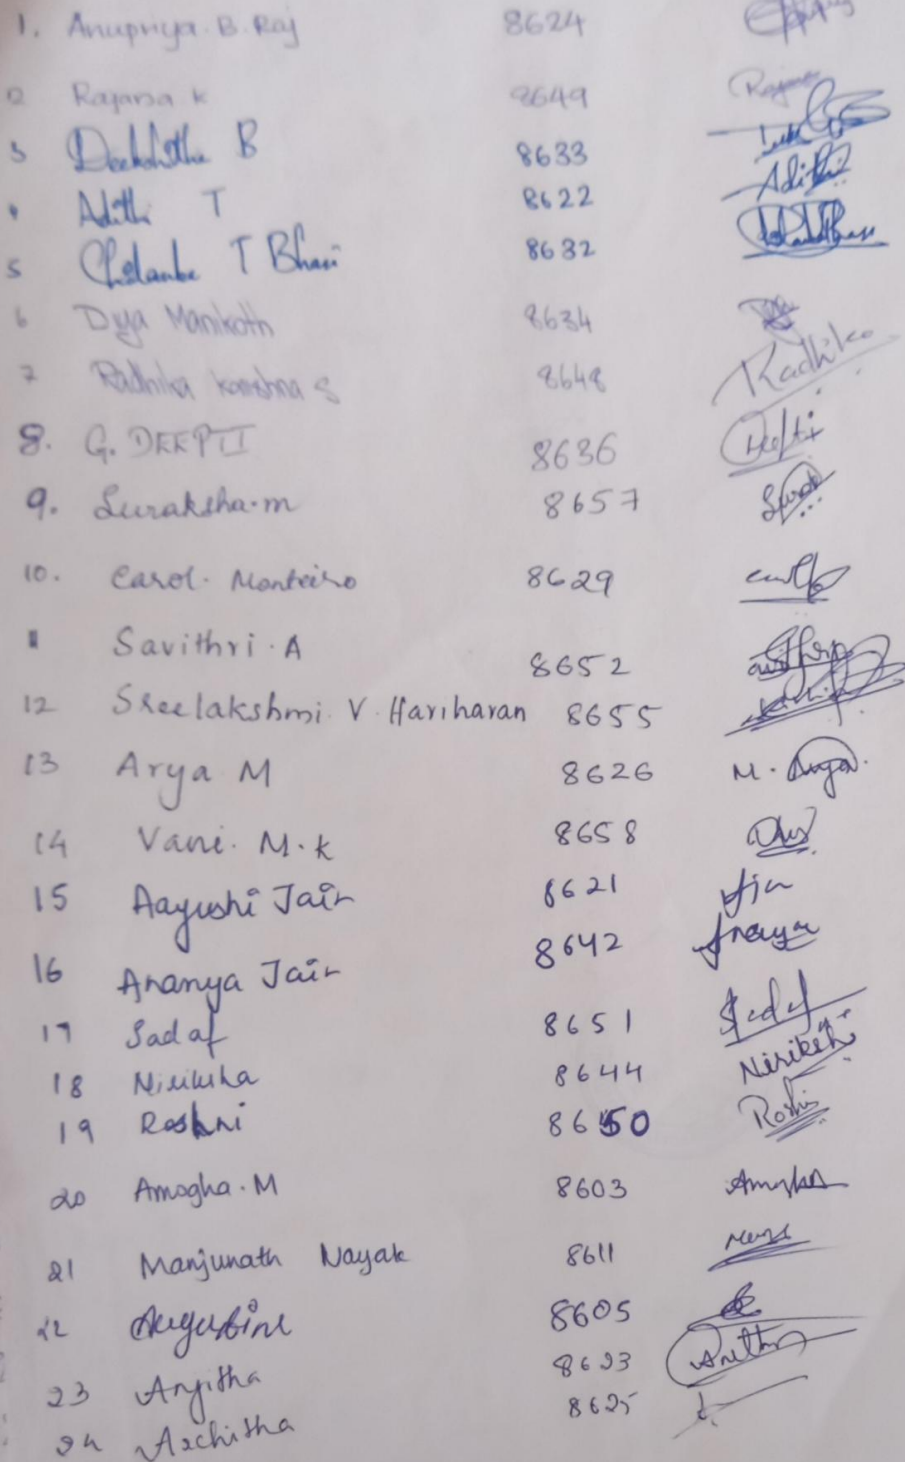 1. Anupriya. B. Raj 8624
2 Rajarsa K 8649 Rajarsa
3 Deekshitha B 8633
4 Adithi T 8622 Adithi
5 T Bhasi 8632
6 Diya Manikoth 8634
7 Radhika S 8648 Radhika
8. G. DEEPTI 8636 Deepti
9. Suraksha.m 8657
10. Carol. Monteiro 8629
11 Savithri. A 8652
12 Sreelakshmi. V. Hariharan 8655
13 Arya M 8626 M. Arya.
14 Vani. M.K 8658
15 Aayushi Jain 8621
16 Ananya Jain 8642
17 Sadaf 8651 Sadaf
18 Niriksha 8644
19 Roshni 8650 Roshni
20 Amogha. M 8603 Amogha
21 Manjunath Nayak 8611
22 Augustine 8605
23 Anjitha 8623
24 Architha 8625